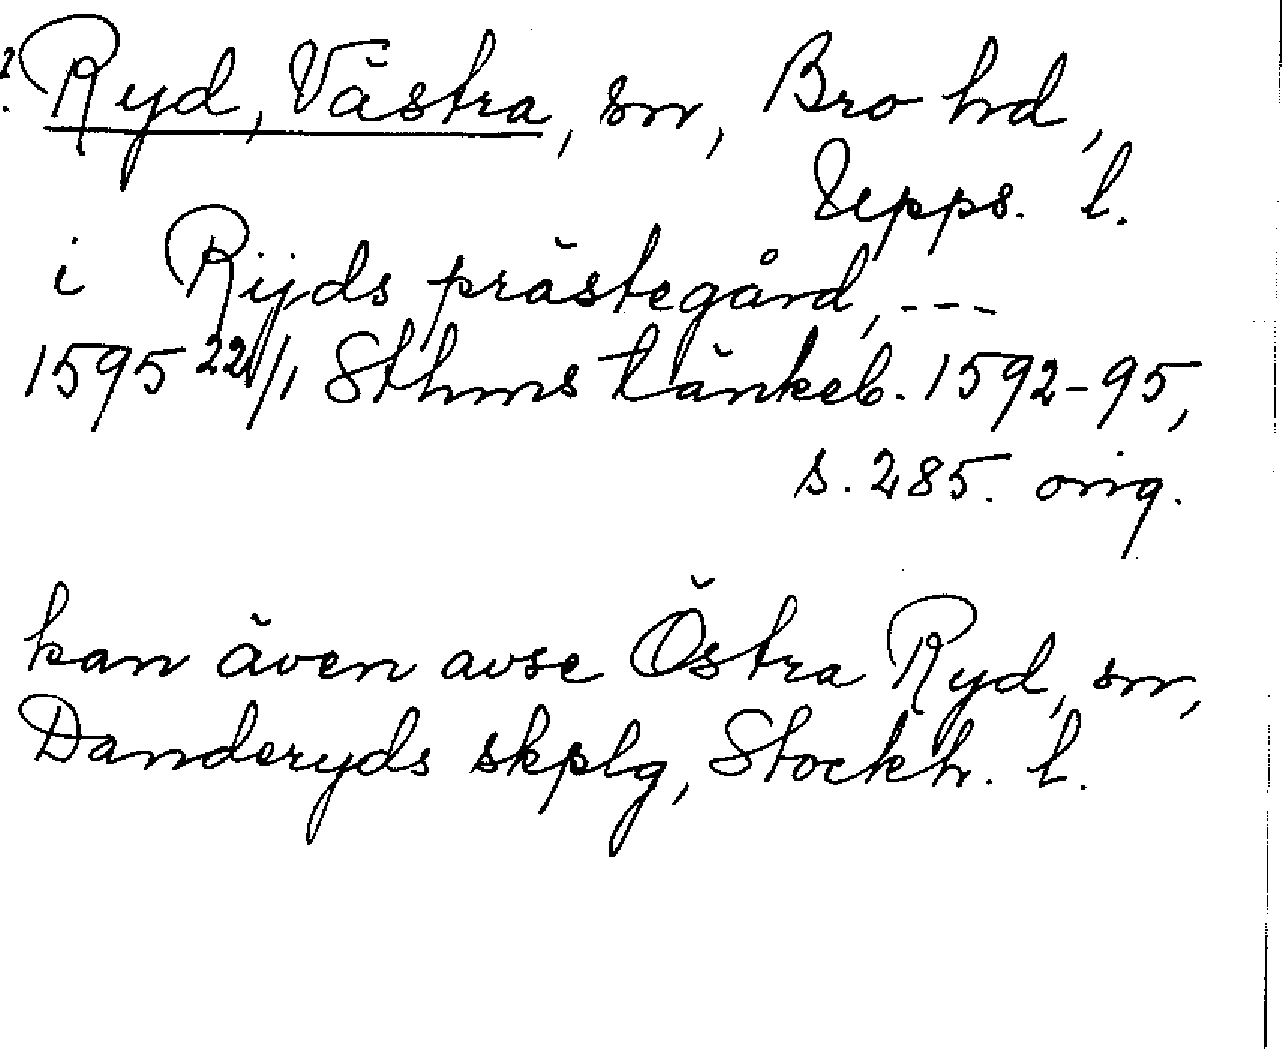 ? Ryd, Västra, sn, Bro hd,
Upps. l.
i Rijds prästegård, ---
1595 22/1 Sthms tänkeb. 1592-95,
s. 285. orig.
kan även avse Östra Ryd, sn,
Danderyds skplg, Stockh. l.